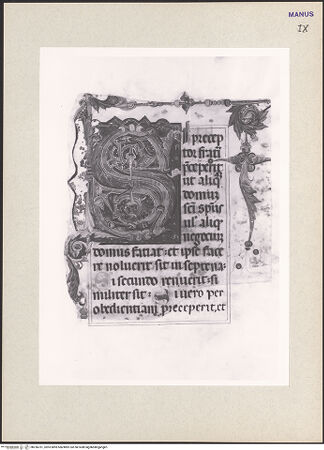 MANUS
IX
S
i precep
tor fratri
p̄ceperit
ut aliq̄
domus
sc̄i sp̄us
ul' aliq̄
negociū
domus faciat: et ipse face
re noluerit sit in septena:
i secundo renuerit: si
militer sit: i uero per
obedientiam preceperit, et